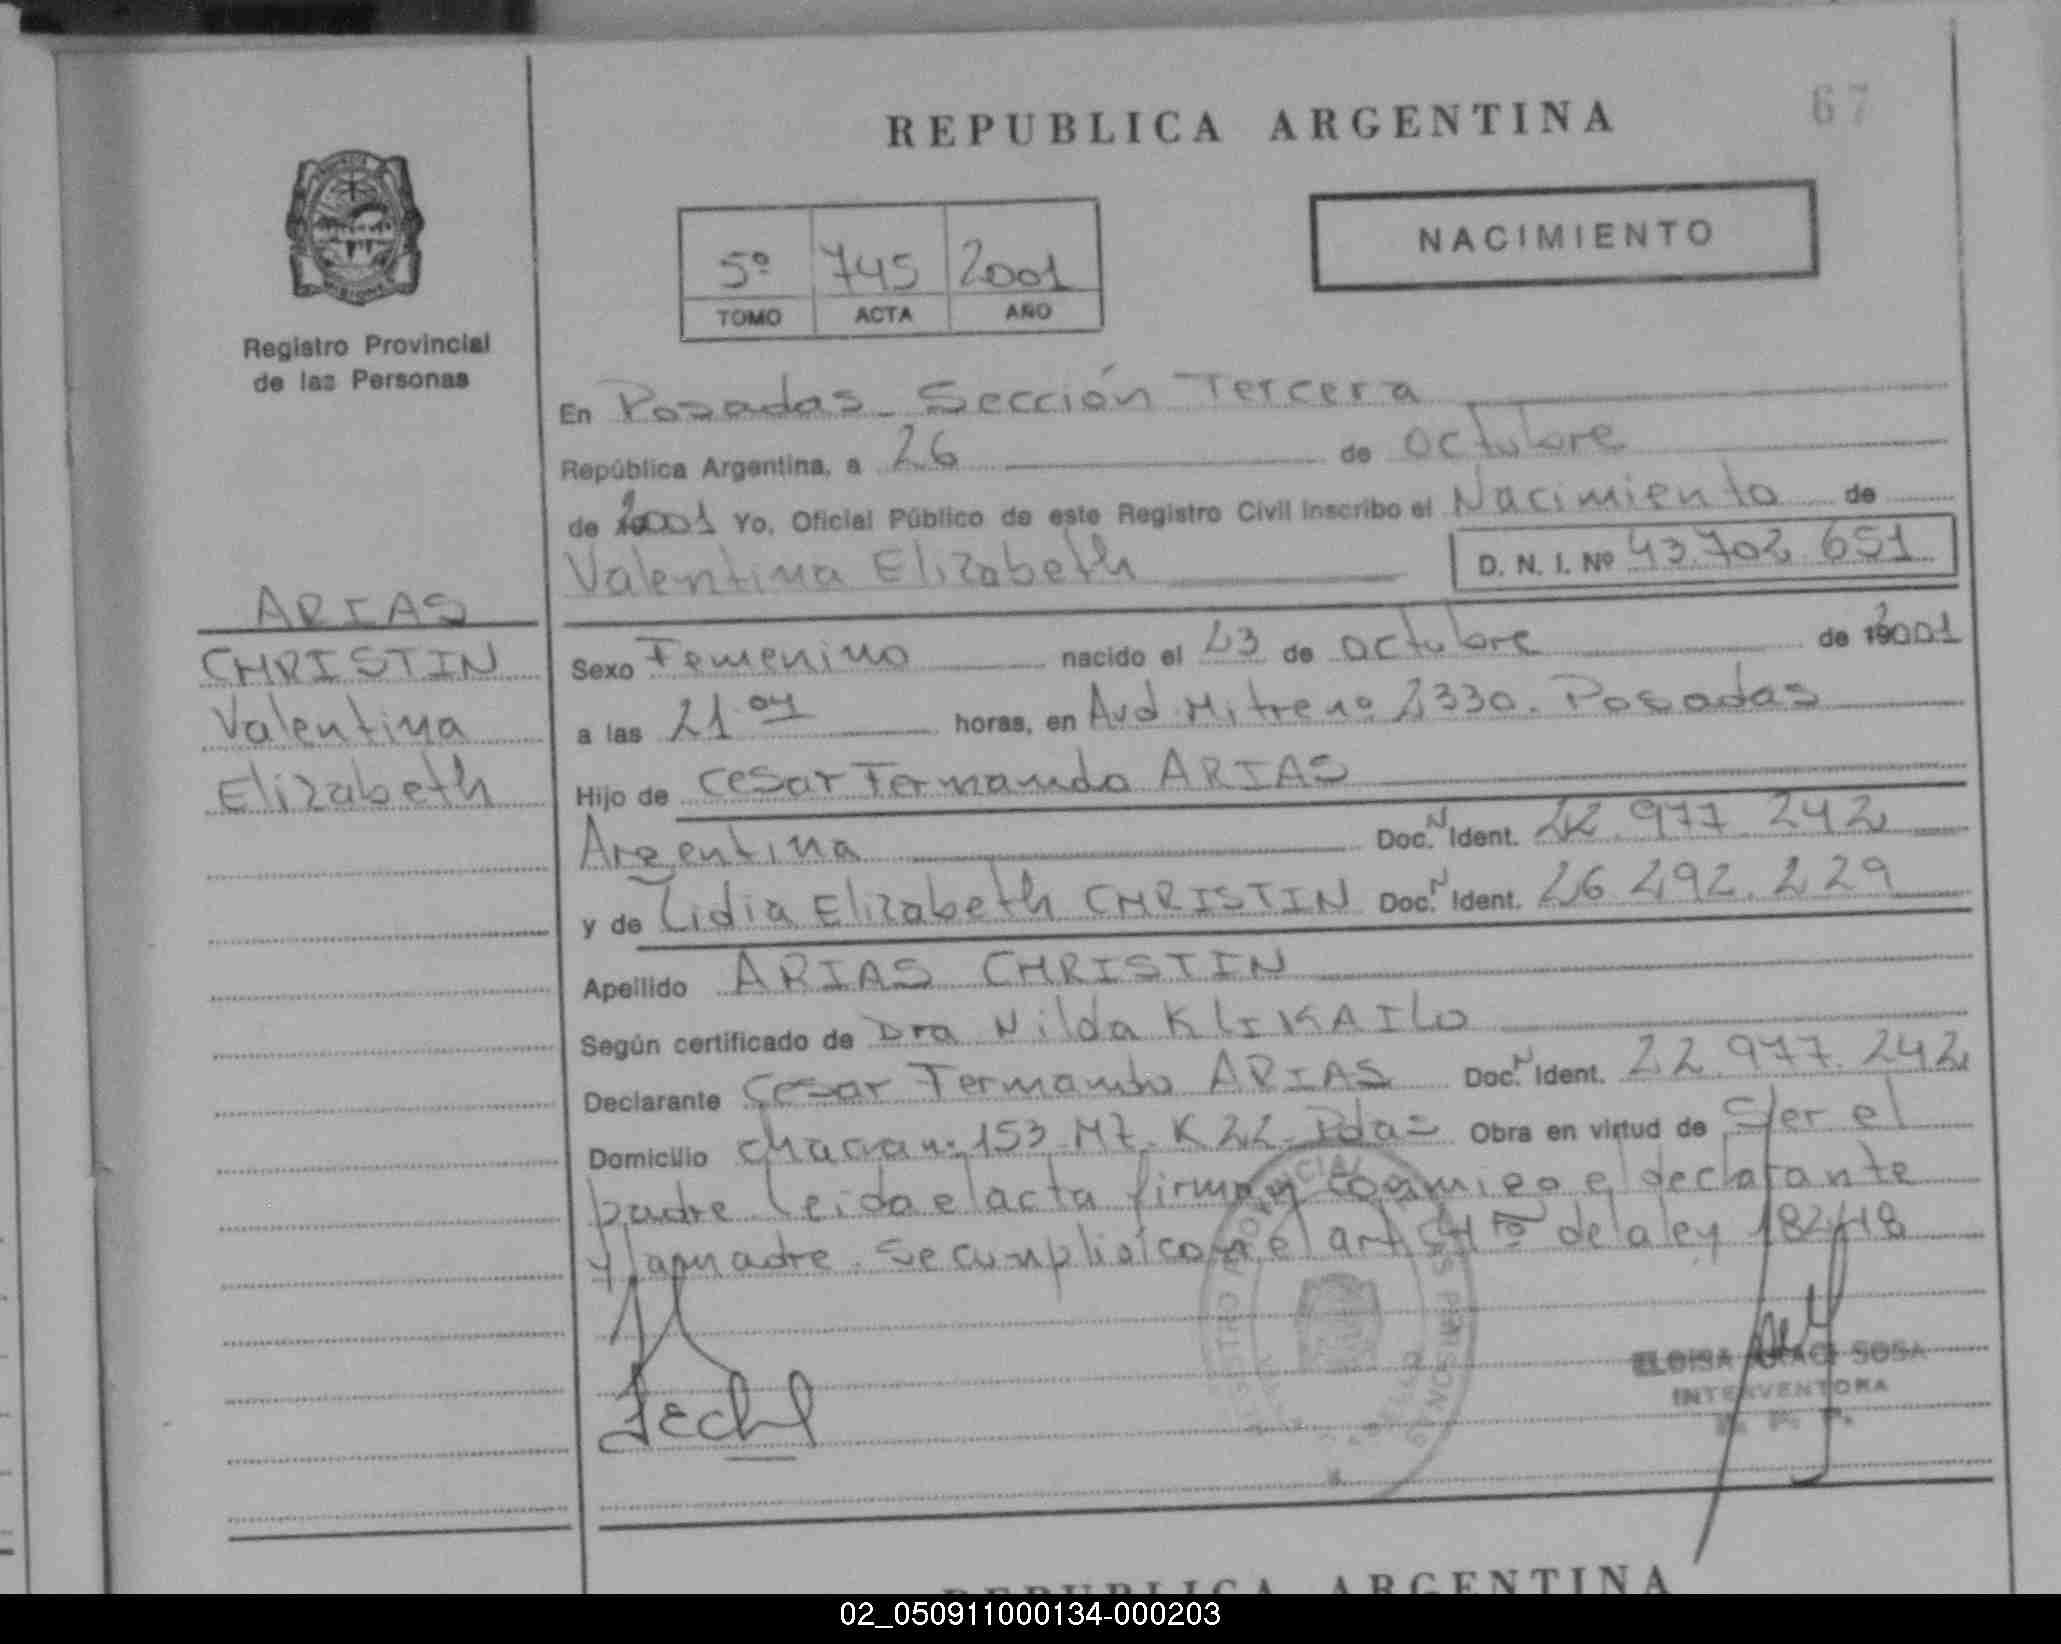 REPUBLICA ARGENTINA
67
NACIMIENTO
5º 745 2001
TOMO ACTA AÑO
Registro Provincial
de las Personas
ARIAS
CHRISTIN
Valentina
Elizabeth
En Posadas - Sección Tercera
República Argentina, a 26 de octubre
de 2001 Yo, Oficial Público de este Registro Civil inscribo el Nacimiento de
Valentina Elizabeth D. N. I. Nº 43.702.651
Sexo Femenino nacido el 23 de octubre de 2001
a las 21 horas, en Avd Mitre nº 2330. Posadas
Hijo de Cesar Fernando ARIAS
Argentina Doc. N Ident. 22.977.242
y de Lidia Elizabeth CHRISTIN Doc. N Ident. 26.292.229
Apellido ARIAS CHRISTIN
Según certificado de Dra Nilda KLIKAILO
Declarante Cesar Fernando ARIAS Doc. N Ident. 22.977.242
Domicilio chacra n: 153 Mz. K 22. Pdas Obra en virtud de Ser el
padre leida el acta firman conmigo el declarante
y la madre. Se cumplió con el art de la ley 18248
ELOISA SOSA
INTERVENTORA
REPUBLICA ARGENTINA
02_050911000134-000203